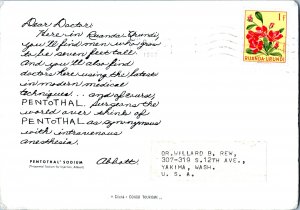 Dear Doctor:
Here in Ruanda Urundi,
you'll find men who grow
to be seven feet tall.
And you'll also find
doctors here using the latest
in modern medical
techniques... and of course,
PENTOTHAL. Surgeons the
world over think of
PENTOTHAL as synonymous
with intravenous
anesthesia.
Abbott.
PENTOTHAL® SODIUM
1 F
RUANDA-URUNDI
DR. WILLARD B. REW,
307-319 S. 12TH AVE.,
YAKIMA, WASH.
U. S. A.